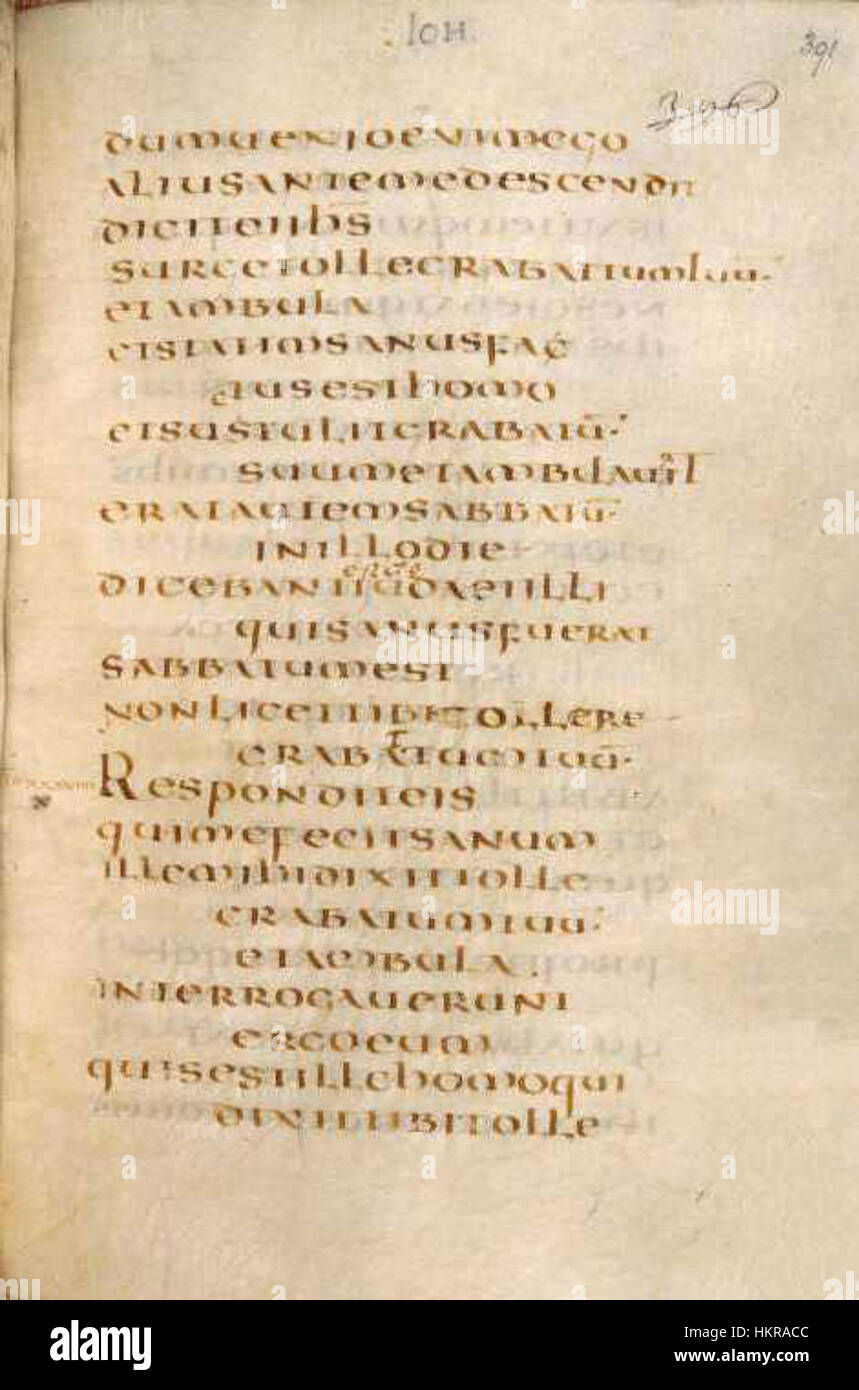 IOH
391
dumuenioenimego
aliusantemedescendit
diciteiihs̄
surgetolleGRABATTUMtuū
etambula
etstatimsanusfac
tusesthomo
etsustulitgrabatū
suumetambulauit
eratautemsabbatū
inillodie
dicebantiudaeiilli
quisanusfuerat
sabbatumest
nonlicettibitollere
grabattumtuū
Responditeis
quimefecitsanum
illemihidixittolle
grabattumtuū
etambula.
interrogauerunt
ergoeum
quisestillehomoqui
dixittibitolle
alamy
Image ID: HKRACC
www.alamy.com